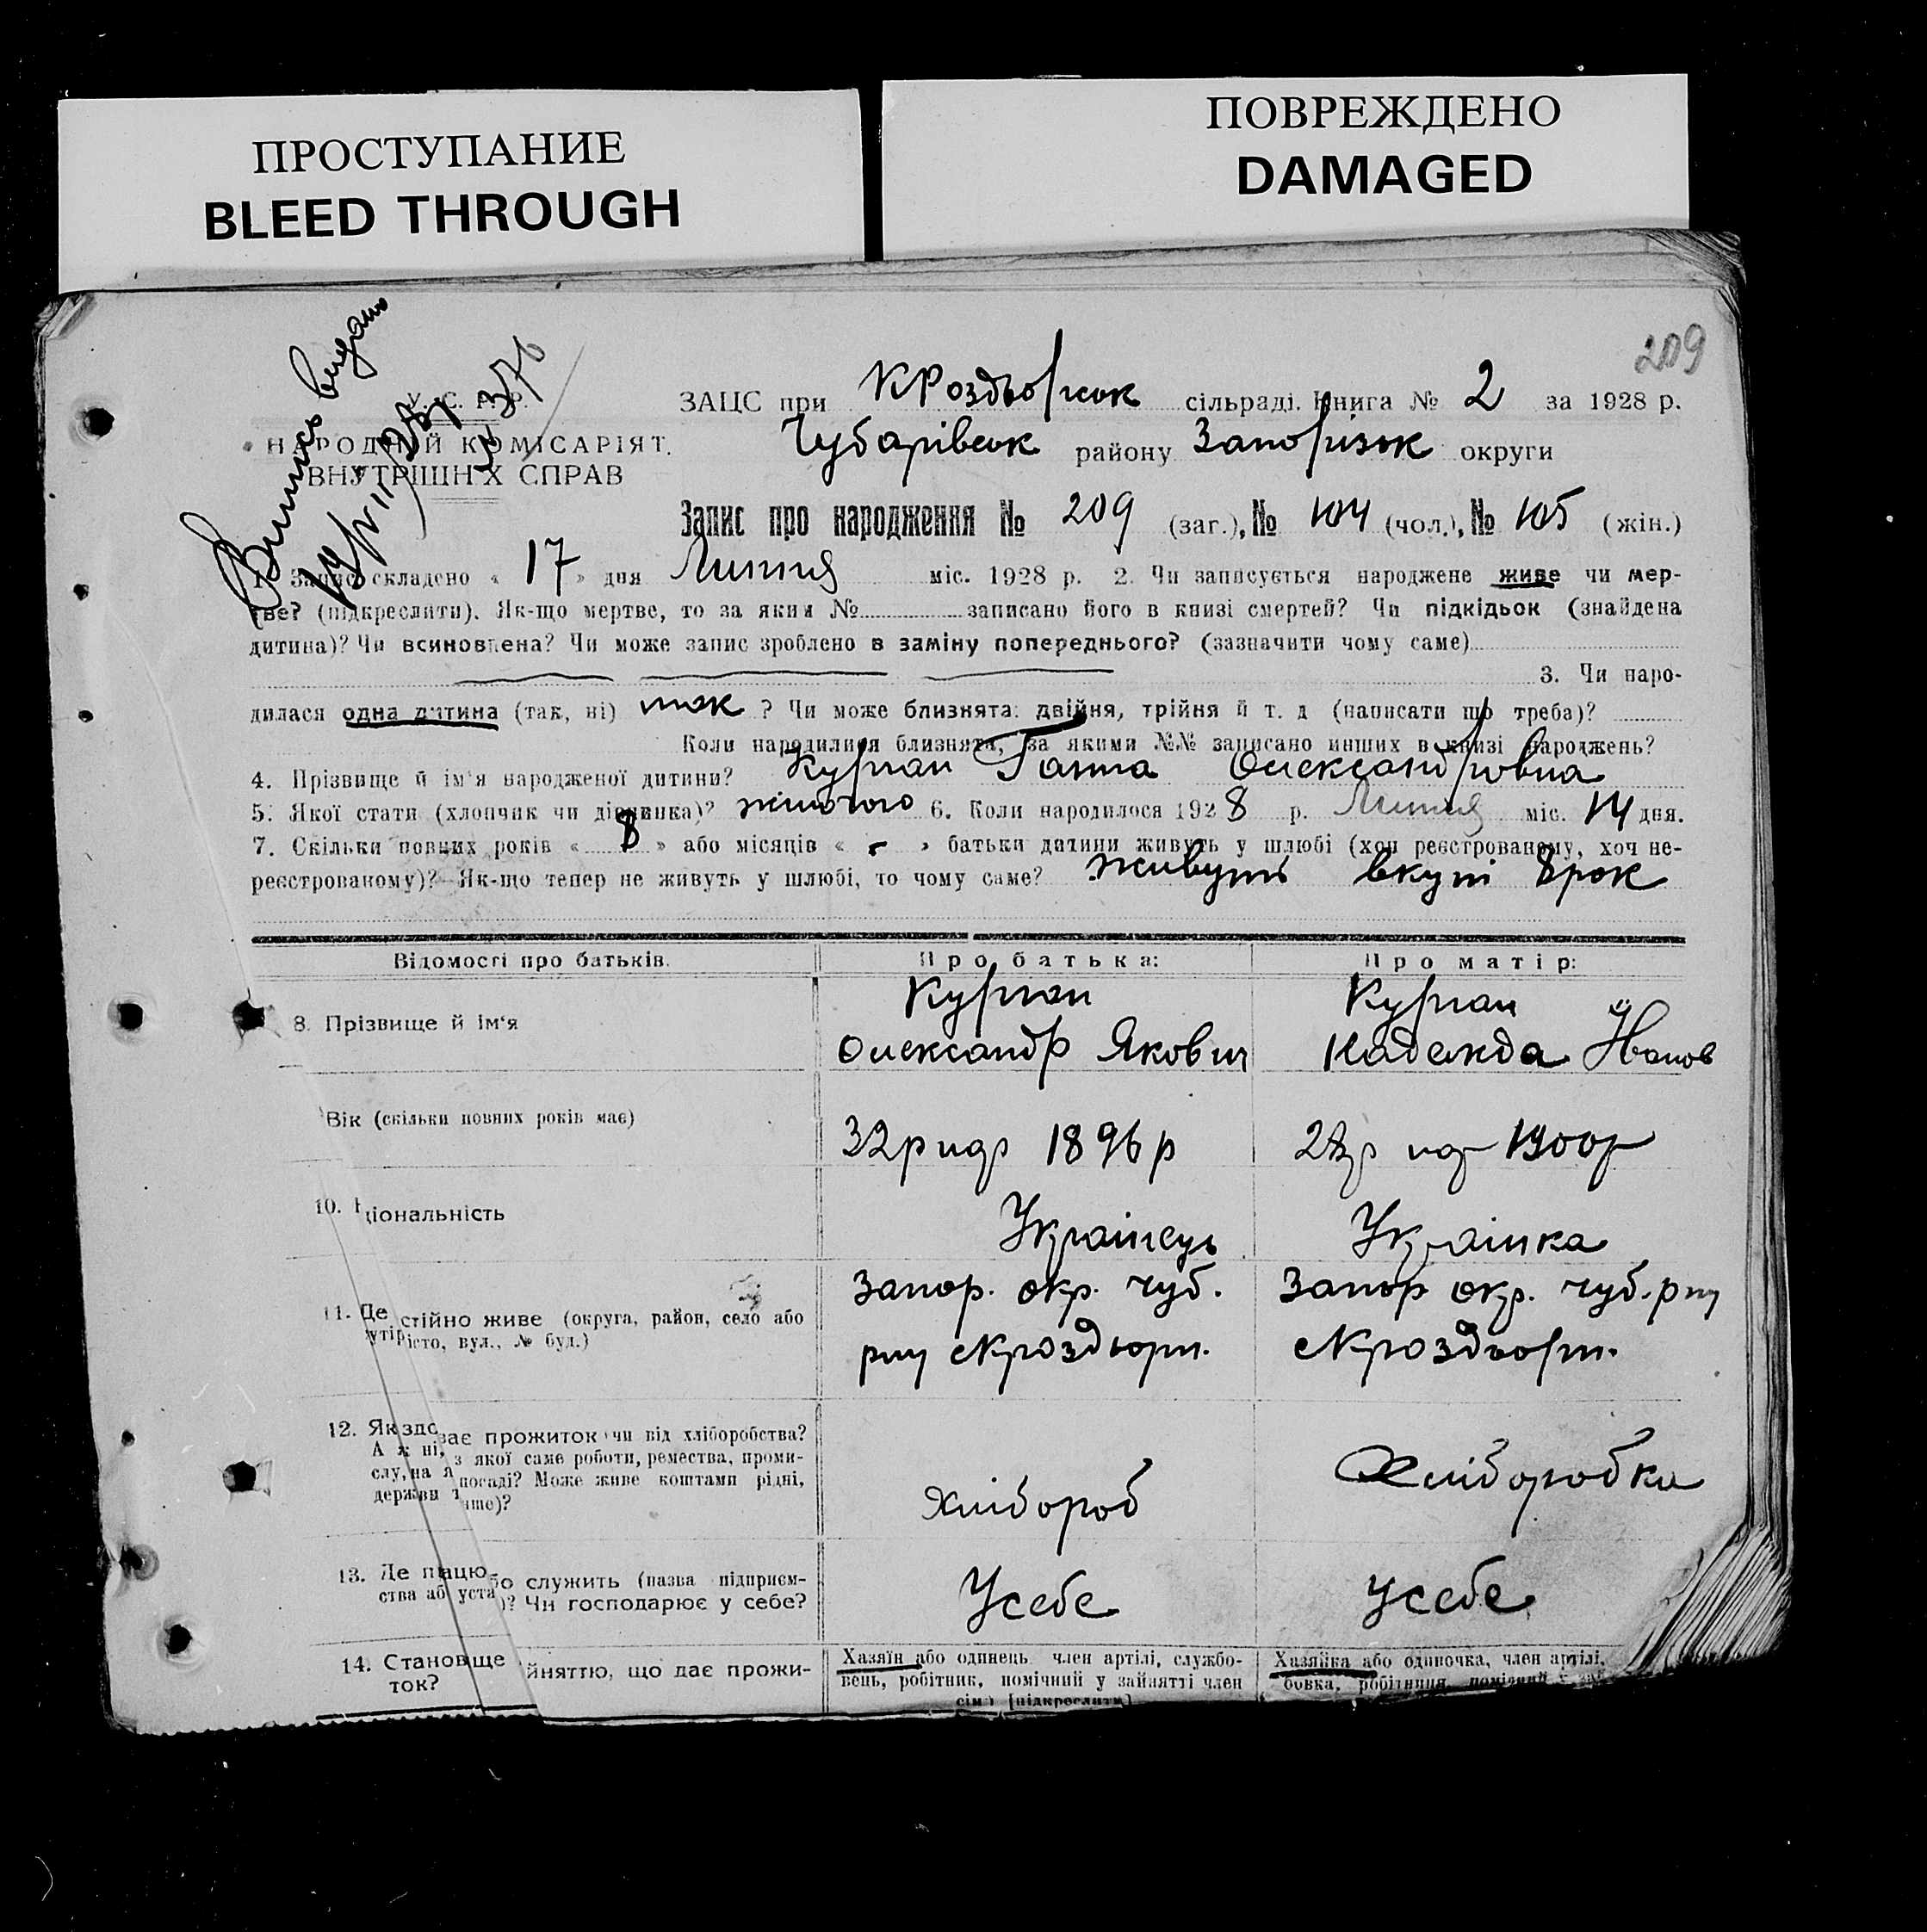 ПРОСТУПАНИЕ
BLEED THROUGH
ПОВРЕЖДЕНО
DAMAGED
209
Випись видано
У. С. Р. Р.
НАРОДНИЙ КОМІСАРІЯТ
ВНУТРІШНІХ СПРАВ
ЗАЦС при КРоздорськ сільраді. Книга № 2 за 1928 р.
Чубарівськ району Запорізьк округи
Запис про народження № 209 (заг.), № 104 (чол.), № 105 (жін.)
1. Запис складено « 17 » дня Липня міс. 1928 р. 2. Чи записується народжене живе чи мер-
тве? (підкреслити). Як-що мертве, то за яким № записано його в книзі смертей? Чи підкідьок (знайдена
дитина)? Чи всиновлена? Чи може запис зроблено в заміну попереднього? (зазначити чому саме)
3. Чи наро-
дилася одна дитина (так, ні) так ? Чи може близнята: двійня, трійня й т. д (написати що треба)?
Коли народилися близнята, за якими №№ записано инших в книзі народжень?
4. Прізвище й ім'я народженої дитини? Курган Ганна Олександровна
5. Якої статі (хлопчик чи дівчинка)? жіночого 6. Коли народилося 1928 р. Липня міс. 14 дня.
7. Скільки повних років « 8 » або місяців « - » батьки дитини живуть у шлюбі (хоч реєстрованому, хоч не-
реєстрованому)? Як-що тепер не живуть у шлюбі, то чому саме? живуть вкупі 8 рок
Відомості про батьків. Про батька: Про матір:
8. Прізвище й ім'я
Курган
Олександр Якович
Курган
Надежда Йванов
Вік (скільки повних років має) 32р нар 1896р 28р нар 1900р
10. ціональність Українець Українка
11. Де стійно живе (округа, район, село або
хутір істо, вул., № буд.)
Запор. окр. Чуб.
рну сКроздори.
Запор окр. чуб. рну
сКроздори.
12. Як здо ває прожиток чи від хліборобства?
А ж ні, з якої саме роботи, ремества, проми-
слу, на я посаді? Може живе коштами рідні,
держави т нше)?
Хлібороб
Хліборобка
13. Де працю бо служить (назва підприєм-
ства або уста )? Чи господарює у себе?
Усебе
Усебе
14. Становище йняттю, що дає прожи-
ток?
Хазяїн або одинець. член артілі, службо-
вець, робітник, помічний у зайнятті член
сім'ї [підкреслити]
Хазяйка або одиночка, член артілі,
бовка, робітниця, помічний у зай